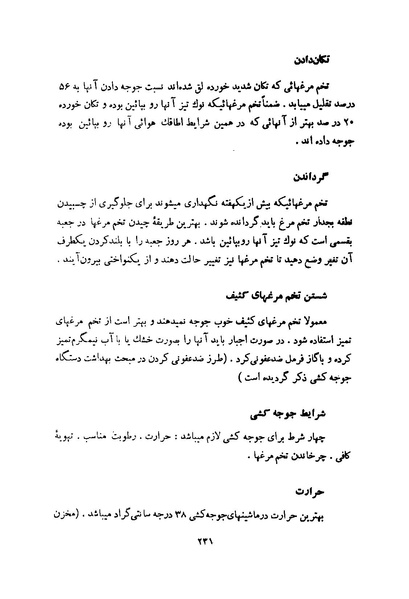 تکان‌دادن
تخم مرغهائی که تکان شدید خورده لق شده‌اند نسبت جوجه دادن آنها به ۵۶
درصد تقلیل مییابد . ضمناً تخم مرغهائیکه نوك تیز آنها رو بپائین بوده و تکان خورده
۲۰ در صد بهتر از آنهائی که در همین شرایط اطاقك هوائی آنها رو بپائین بوده
جوجه داده اند .
گرداندن
تخم مرغهائیکه بیش از یکهفته نگهداری میشوند برای جلوگیری از چسبیدن
نطفه بجدار تخم مرغ باید گردانده شوند . بهترین طریقهٔ چیدن تخم مرغها در جعبه
بقسمی است که نوك تیز آنها روبپائین باشد . هر روز جعبه را با بلندکردن یکطرف
آن تغیر وضع دهید تا تخم مرغها نیز تغییر حالت دهند و از یکنواختی بیرون آیند .
شستن تخم مرغهای کثیف
معمولا تخم مرغهای کثیف خوب جوجه نمیدهند و بهتر است از تخم مرغهای
تمیز استفاده شود . در صورت اجبار باید آنها را بصورت خشك یا با آب نیمگرم تمیز
کرده و باگاز فرمل ضدعفونی کرد . (طرز ضدعفونی کردن در مبحث بهداشت دستگاه
جوجه کشی ذکر گردیده است )
شرایط جوجه کشی
چهار شرط برای جوجه کشی لازم میباشد : حرارت . رطوبت مناسب . تهویهٔ
کافی . چرخاندن تخم مرغها .
حرارت
بهترین حرارت درماشینهای جوجه‌کشی ۳۸ درجه سانتی‌گراد میباشد . (مخزن
۲۳۱